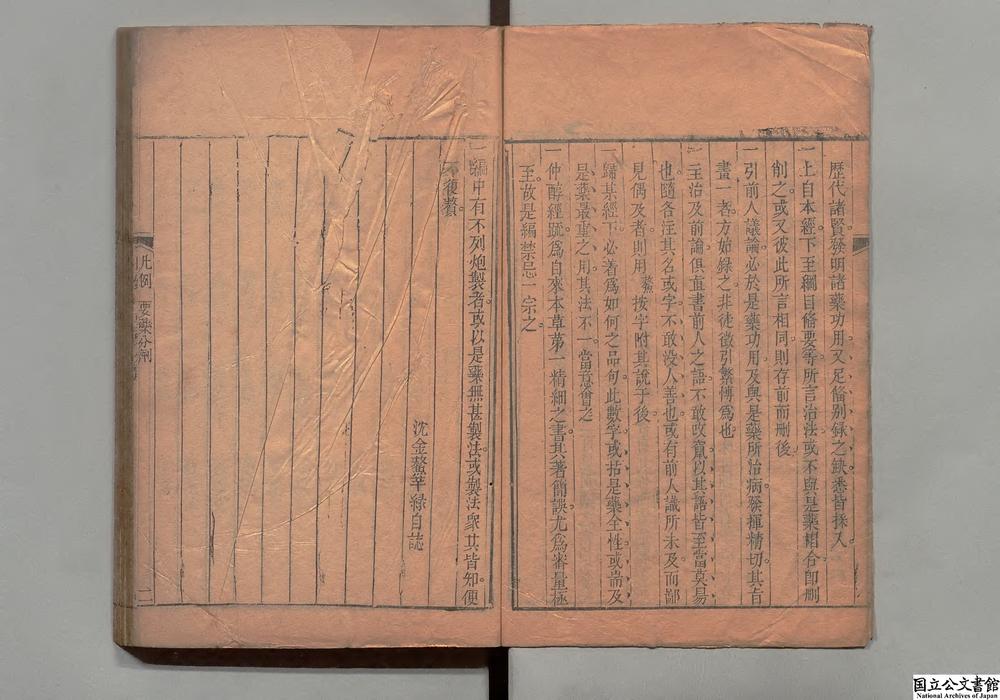 歷代諸賢發明諸藥功用又足備别錄之缺悉皆採入
一上自本經下至綱目備要等所言治法或不與是藥相合即刪
削之或又彼此所言相同則存前而刪後
一引前人議論必於是藥功用及與是藥所治病發揮精切其旨
畫一者方始錄之非徒徵引繁愽爲也
一主治及前論俱直書前人之語不敢改竄以其語皆至當莫易
也隨各注其名或字不敢没人善也或有前人議所未及而鄙
見偶及者則用鰲按字附其說于後
一歸某經下必著爲如何之品句此數字或括是藥全性或耑及
是藥最重之用其法不一當意會之
一仲醇經疏爲自來本草苐一精細之書其著簡誤尤爲審量極
至故是編禁忌一宗之
一編中有不列炮製者或以是藥無甚製法或製法衆共皆知便
不復贅
沈金鰲芊綠自誌
凡例
要藥分劑
二
国立公文書館
National Archives of Japan